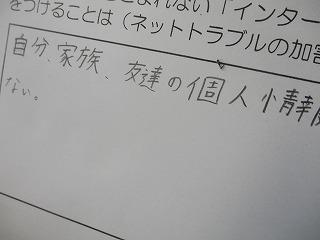 れない「インター
をつけることは（ネットトラブルの加害
自分、家族、友達の個人情報
ない。